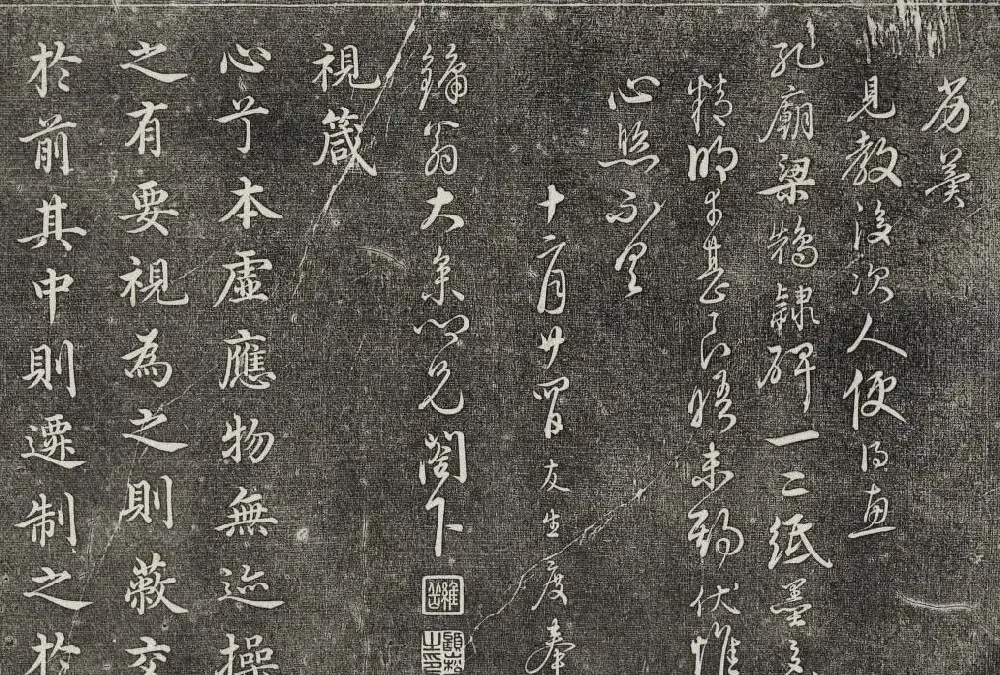 劳美
見教後次人便得惠
孔廟梁鵠隸碑一二紙墨
精明者甚了良晤未期伏惟
心照不宣
十二月廿四日友生度奉
鏞翁大參心兄閣下
視箴
心兮本虛應物無迹操
之有要視為之則蔽交
於前其中則遷制之於